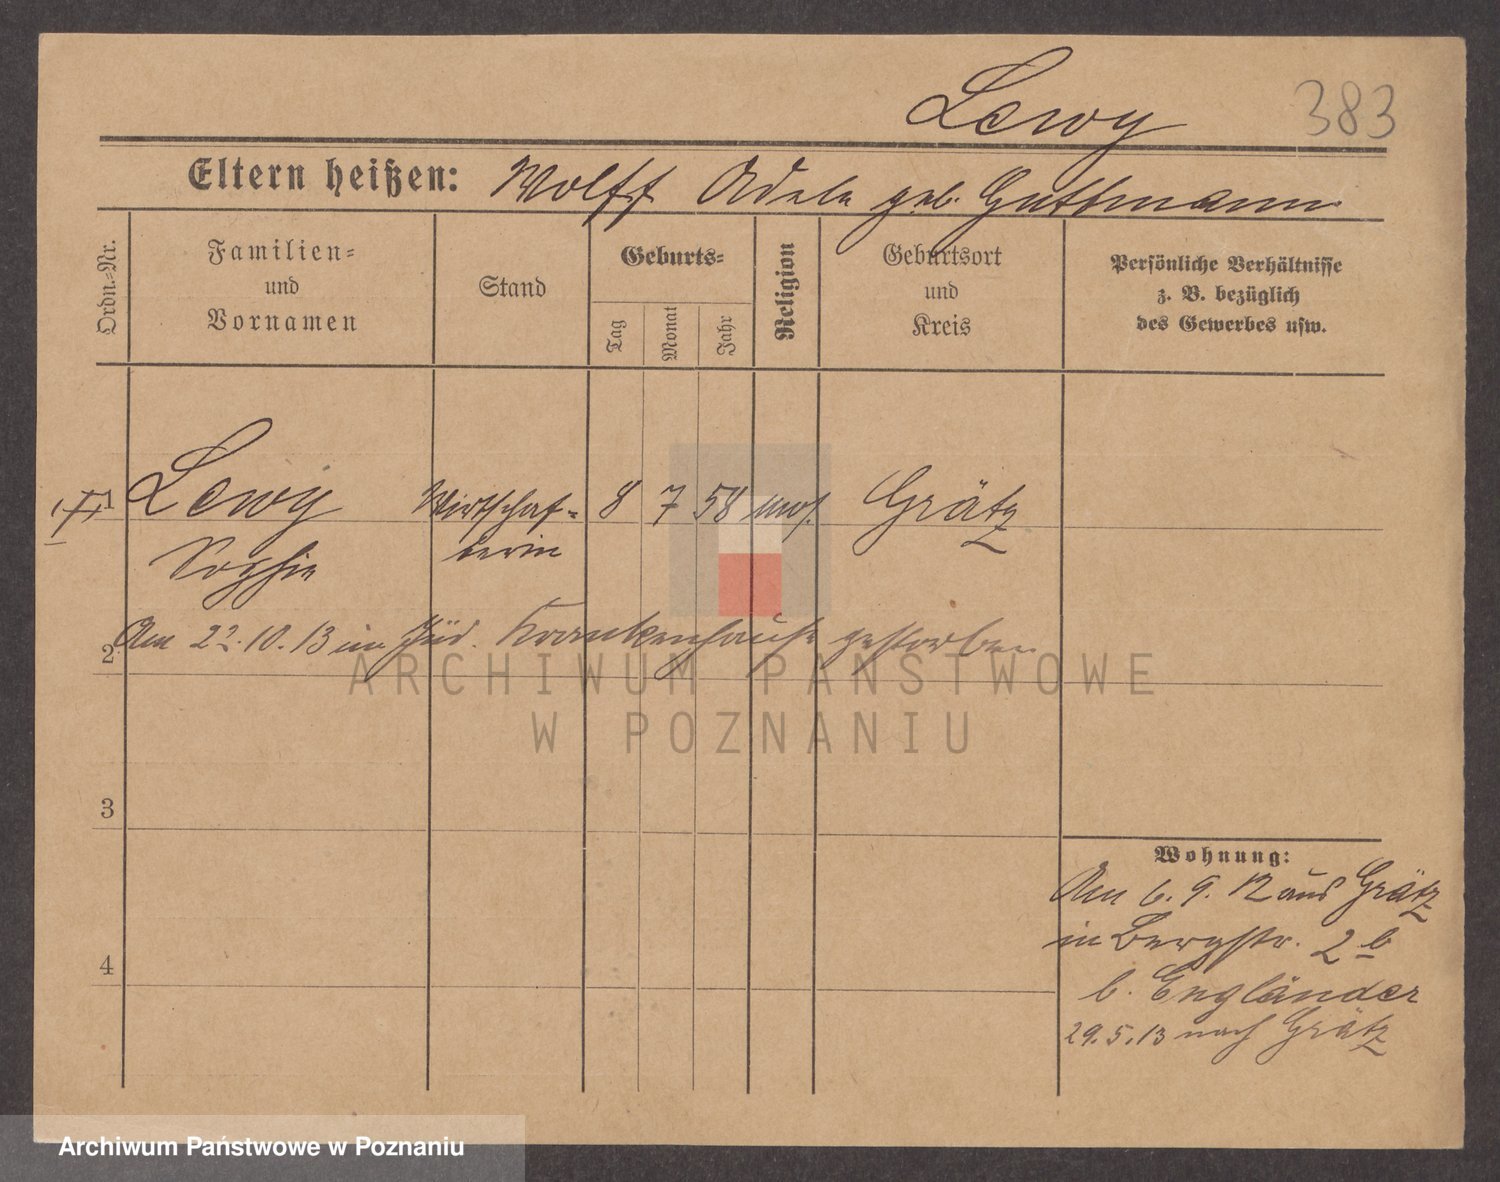 Lewy 383
Eltern heißen: Wolff Adele geb. Guttmann
Ordn.-Nr.
Familien-
und
Vornamen
Stand
Geburts-
Tag
Monat
Jahr
Religion
Geburtsort
und
Kreis
Persönliche Verhältnisse
z. B. bezüglich
des Gewerbes usw.
1 Lewy Wirtschaf- 8 7 58 mos. Grätz
Sophie terin
2 Am 22.10.13 im Jüd. Krankenhause gestorben
3
4
Wohnung:
Am 6. 9. 12 aus Grätz
in Bergstr. 2 b
b. Engländer
29.5.13 nach Grätz
ARCHIWUM PAŃSTWOWE
W POZNANIU
Archiwum Państwowe w Poznaniu